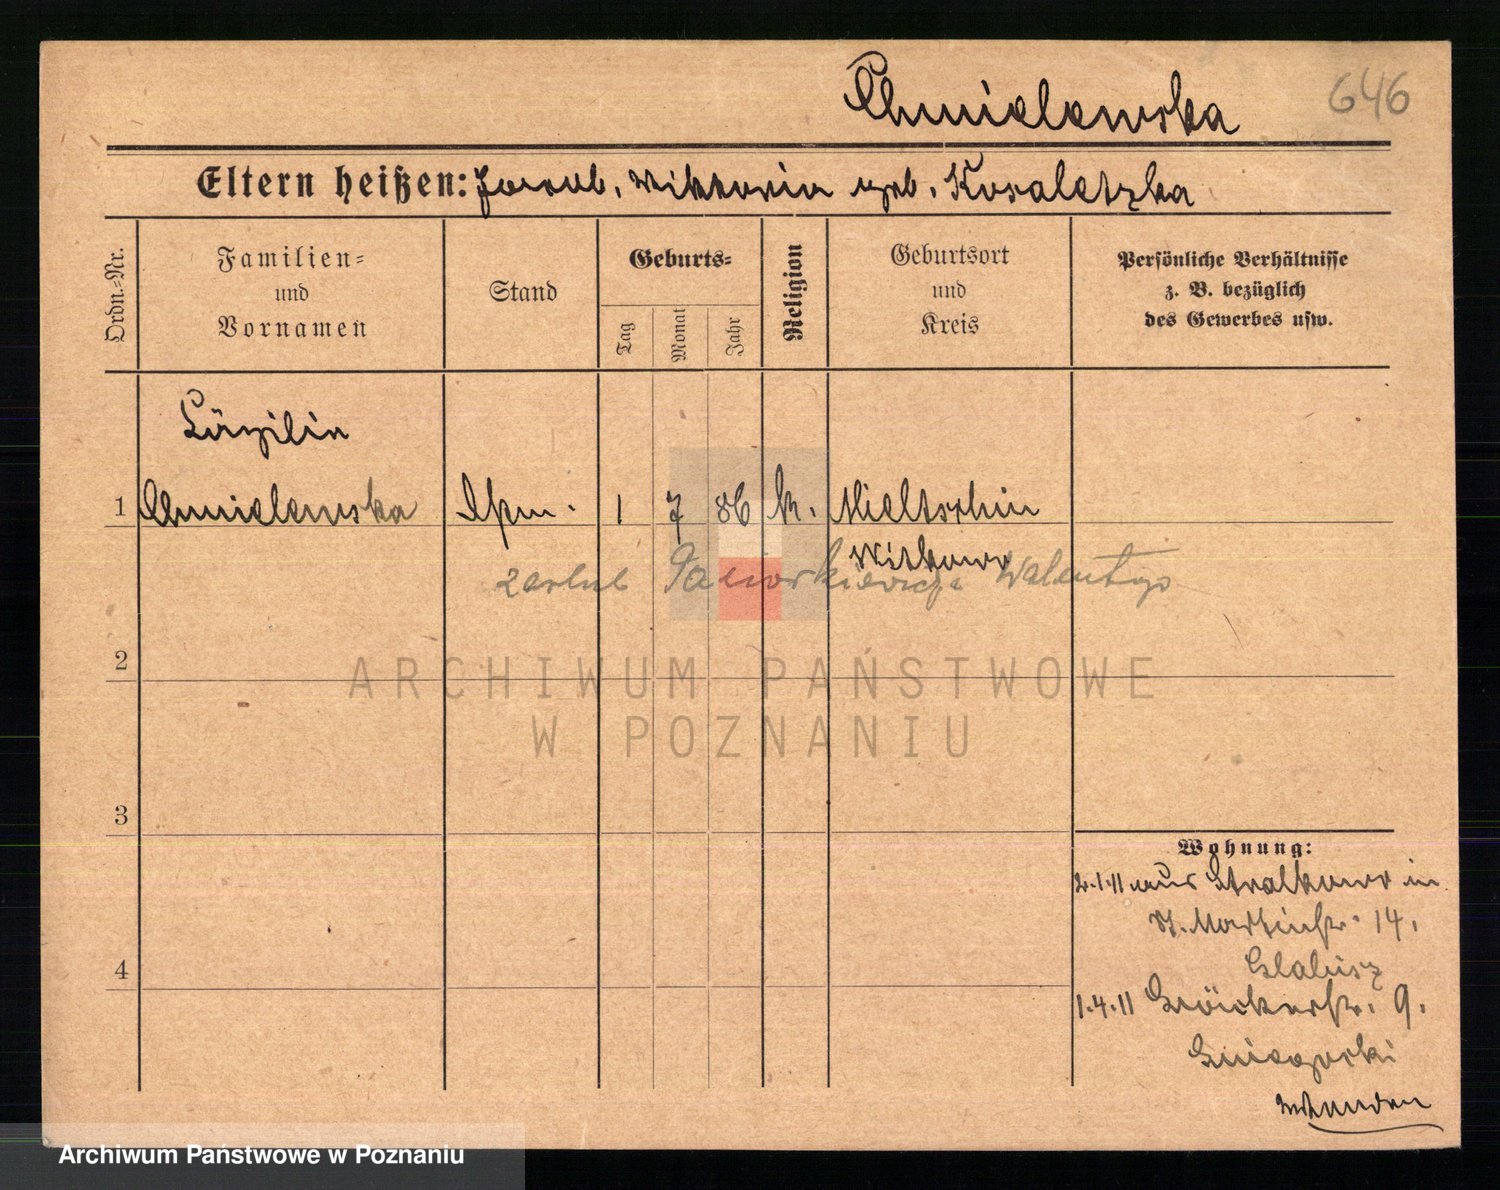 Chmielewska 646
Eltern heißen: Jacob, Viktoria geb. Kosaletzka
Ordn.-Nr.
Familien-
und
Vornamen
Stand
Geburts-
Tag
Monat
Jahr
Religion
Geburtsort
und
Kreis
Persönliche Verhältnisse
z. B. bezüglich
des Gewerbes usw.
Cäzilia
1 Chmielewska 1 7 86 k. Mieltschin
Witkowo
zaślub Walentego
2
ARCHIWUM PAŃSTWOWE
W POZNANIU
3
Wohnung:
2.1.11 aus Stralkowo in
St. Martinstr. 14.
Glabisz
4
1.4.11 9.
Archiwum Państwowe w Poznaniu